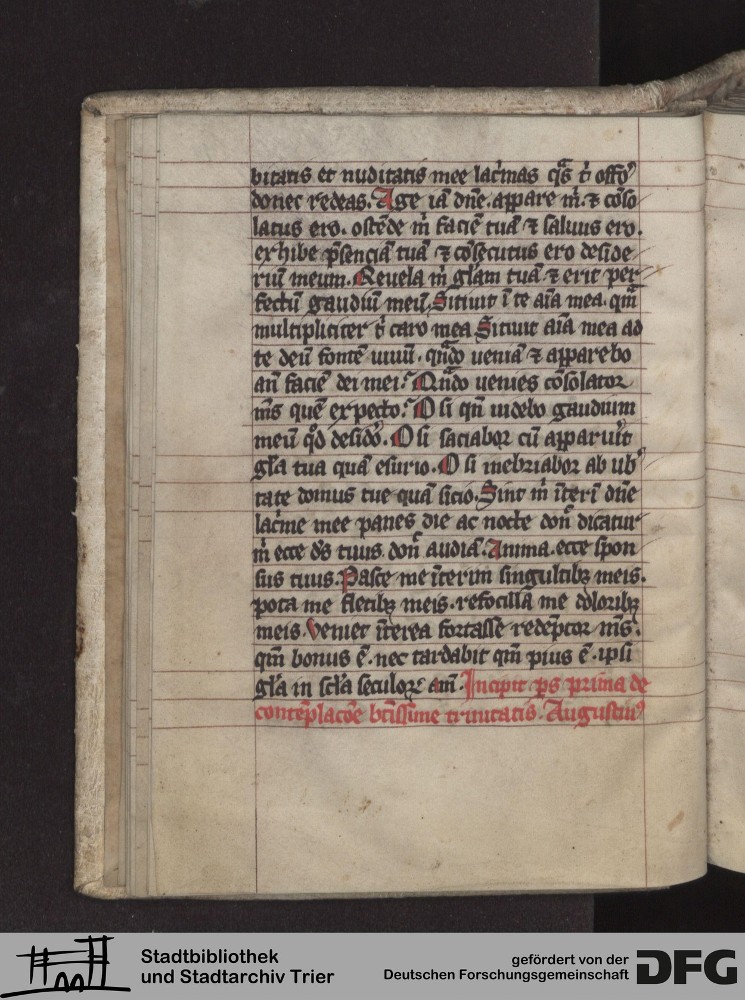 bitatis et nuditatis mee lac̓mas q̄s t̓ offo᷒
donec redeas. Age iā dn̄e. appare m̓. ⁊ cōſo
latus ero. oſtēde m̓ faciē tuā ⁊ saluus ero.
exhibe p̄senciā tuā ⁊ cōsecutus ero deside
riū meum. Reuela m̓ gl̄am tuā ⁊ erit per
fectū gaudiū meū. Sitiuit ī te aīa mea. qm̄
multipliciter t̓ caro mea Sitiuit aīa mea ad
te deū fontē uiuū. qn̄do ueniā ⁊ apparebo
an̄ faciē dei mei? Qn̄do uenies cōsolator
m̄s quē expecto? O si qn̄ uidebo gaudium
meū qd̓ desido̓. O si saciabor cū apparuit̓
gl̄a tua quā esurio. O si inebriabor ab ub̓
tate domus tue quā sicio. Sint m̓ īterī dn̄e
lac̓me mee panes die ac nocte don̄ dicatur
m̓ ecce ds̄ tuus. don̄ audiā. Anima. ecce spon
sus tuus. Pasce me īterim singultibꝫ meis.
pota me fletibꝫ meis. refocillā me doloribꝫ
meis. Veniet īterea fortasse redēptor m̄s.
qm̄ bonus ē. nec tardabit qm̄ pius ē. ipsi
gl̄a in scl̄a seculoꝝ am̄. Incipit ps prima de
contēplacōe btīssime trinitatis. Augustin᷒
Stadtbibliothek
und Stadtarchiv Trier
gefördert von der
Deutschen Forschungsgemeinschaft
DFG